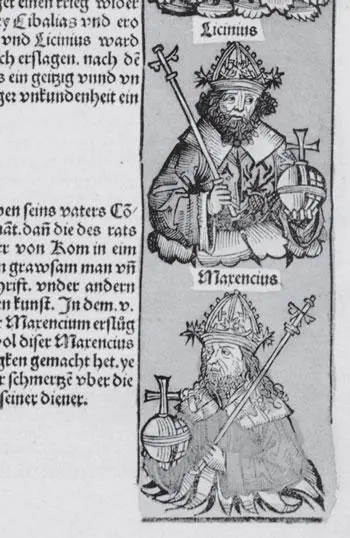 ger einen krieg wider
ey Cibalias vnd ero
vnd Licinius ward
ch erslagen. nach dē
s ein geitzig vnnd vn
ger vnkundenheit ein
Licinius
ben seins vaters Cō/
āt. dañ die des rats
rr von Rom in eim
n grawsam man vñ
hrift. vnder andern
en kunst. In dem .v.
r Maxencium erslüg
ol diser Maxencius
gken gemacht het. ye
r schmertzē vber die
seiner diener.
Maxencius